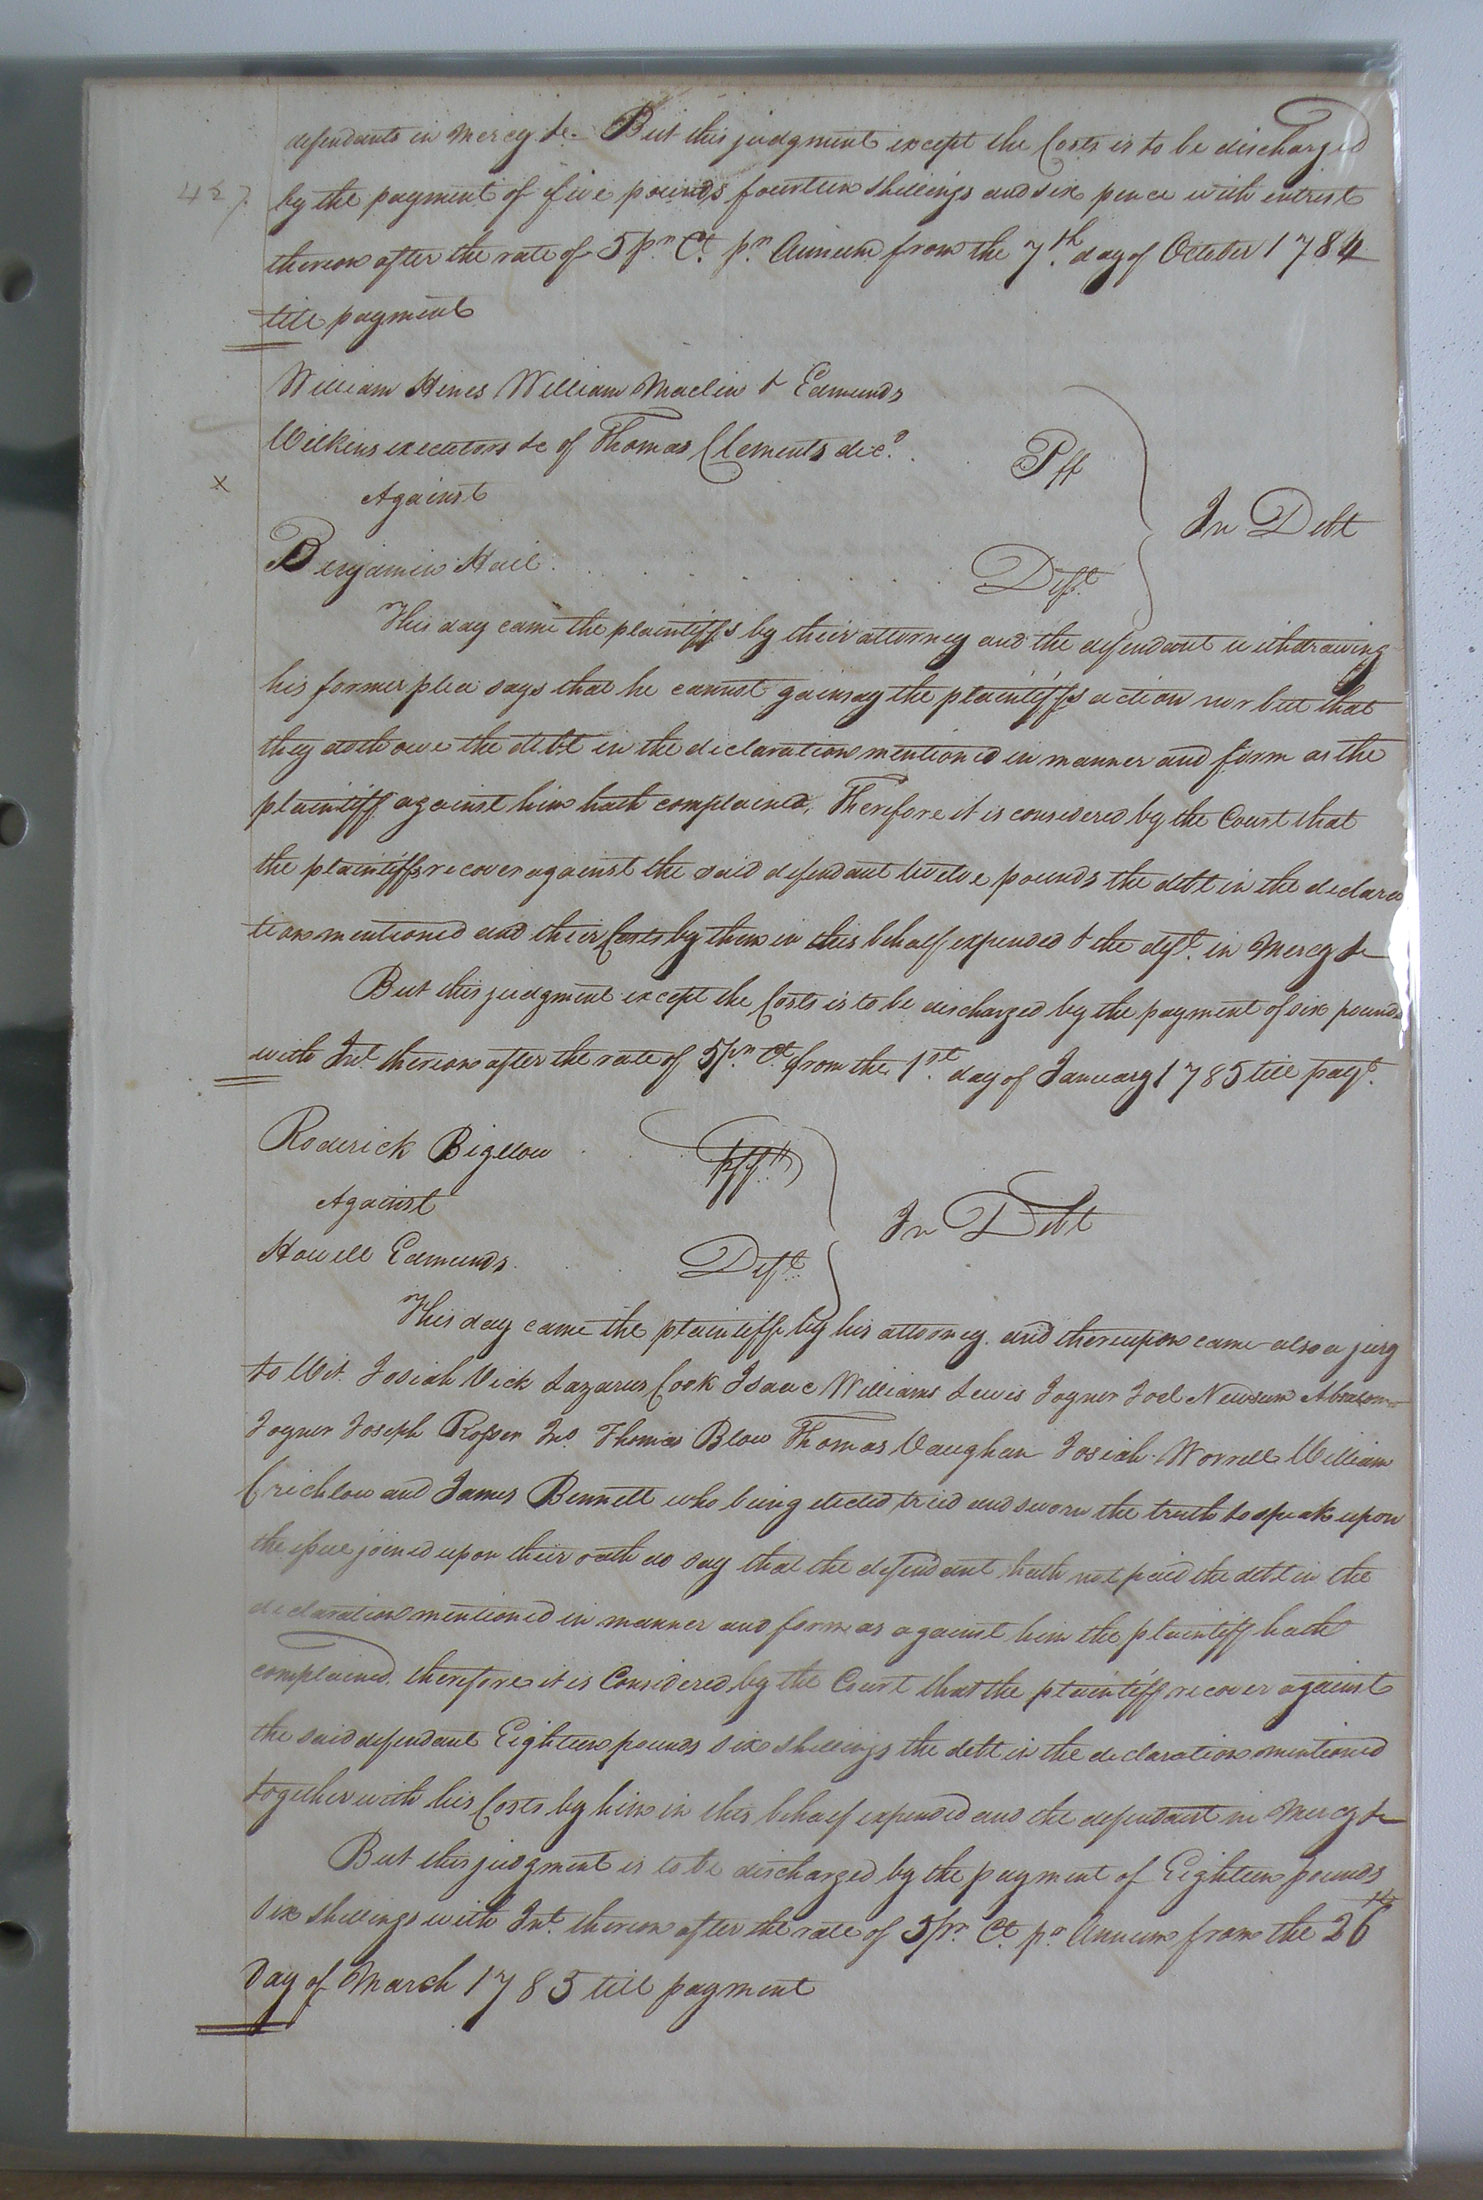 defendants in Mercy &c. But this judgment except the Costs is to be discharged
427. by the payment of five pounds fourteen shillings and six pence with intrest
thereon after the rate of 5 pr. Ct. pr. Annum from the 7th. day of October 1784
till payment
William Hines William Maclin & Edmunds
Wilkins executors &c of Thomas Clements decd. . Pff
x
Against
In Debt
Benjamin Hail . . . . . . . . Deft.
This day came the plaintiffs by their attorney and the defendant withdrawing
his former plea says that he cannot gainsay the plaintiffs action nor but that
they doth owe the debt in the declaration mentioned in manner and form as the
plaintiff against him hath complained, Therefore it is considered by the Court that
the plaintiffs recover against the said defendant twelve pounds the debt in the declara
tion mentioned and their Costs by them in this behalf expended & the deft. in Mercy &c
But this judgment except the Costs is to be discharged by the payment of six pounds
with Int. thereon after the rate of 5 pr. Ct. from the 1st. day of January 1785 till payt.
Roderick Bigelow . . . pff
Against
In Debt
Howell Edmunds . . . Deft.
This day came the plaintiff by his attorney and thereupon came also a jury
to Wit. Josiah Vick Lazarus Cook Isaac Williams Lewis Joyner Joel Newsum Absalom
Joyner Joseph Rosser Jno. Thomas Blow Thomas Vaughan Josiah Worrell William
Crichlow and James Bennett who being elected tried and sworn the truth to speak upon
the issue joined upon their oath do say that the defendant hath not paid the debt in the
declaration mentioned in manner and form as against him the plaintiff hath
complained. therefore it is Considered by the Court that the plaintiff recover against
the said defendant Eighteen pounds six shillings the debt in the declaration mentioned
together with his Costs by him in this behalf expended and the defendant in Mercy &c
But this judgment is to be discharged by the payment of Eighteen pounds
Six shillings with Int. thereon after the rate of 5 pr. Ct. pr Annum from the 26th
day of March 1785 till payment